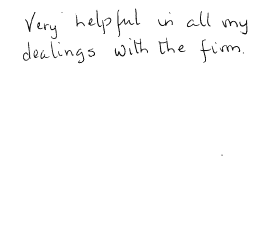 Very helpful in all my
dealings with the firm.